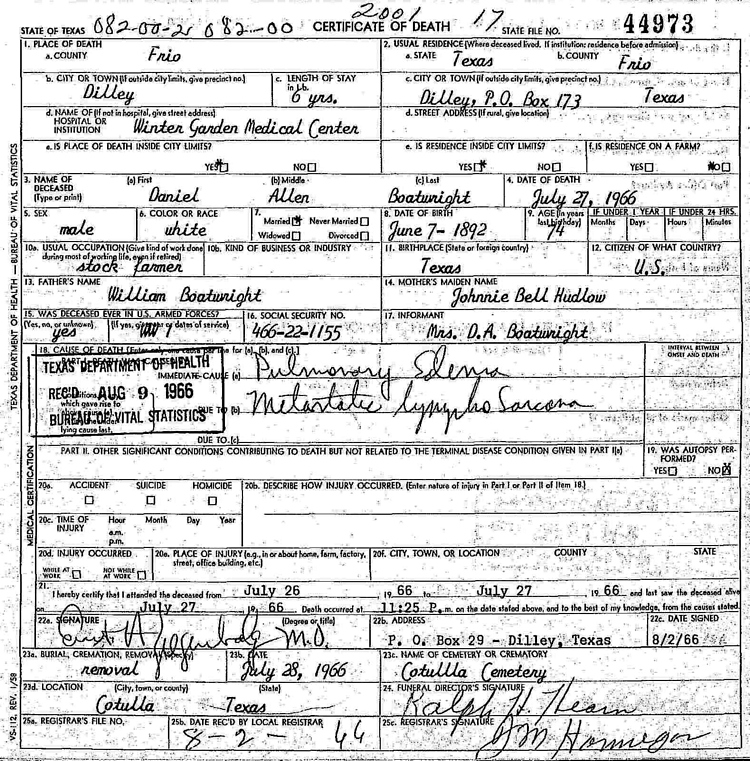 2001 17
STATE OF TEXAS 082-00-2 082-00 CERTIFICATE OF DEATH STATE FILE NO. 44973
1. PLACE OF DEATH
a. COUNTY Frio
2. USUAL RESIDENCE (Where deceased lived. If institution: residence before admission)
a. STATE Texas b. COUNTY Frio
b. CITY OR TOWN (If outside city limits, give precinct no.) Dilley
c. LENGTH OF STAY in 1.b. 6 yrs.
c. CITY OR TOWN (If outside city limits, give precinct no.)
Dilley, P.O. Box 173 Texas
d. NAME OF (If not in hospital, give street address)
HOSPITAL OR INSTITUTION Winter Garden Medical Center
d. STREET ADDRESS (If rural, give location)
e. IS PLACE OF DEATH INSIDE CITY LIMITS?
YES NO
e. IS RESIDENCE INSIDE CITY LIMITS?
YES NO
f. IS RESIDENCE ON A FARM?
YES NO
3. NAME OF DECEASED (Type or print)
(a) First Daniel (b) Middle Allen (c) Last Boatwright
4. DATE OF DEATH
July 27, 1966
5. SEX male
6. COLOR OR RACE white
7. Married Never Married
Widowed Divorced
8. DATE OF BIRTH
June 7- 1892
9. AGE (In years last birthday) 74
IF UNDER 1 YEAR Months Days
IF UNDER 24 HRS. Hours Minutes
10a. USUAL OCCUPATION (Give kind of work done during most of working life, even if retired)
stock farmer
10b. KIND OF BUSINESS OR INDUSTRY
11. BIRTHPLACE (State or foreign country)
Texas
12. CITIZEN OF WHAT COUNTRY?
U.S.
13. FATHER'S NAME
William Boatwright
14. MOTHER'S MAIDEN NAME
Johnnie Bell Hudlow
15. WAS DECEASED EVER IN U.S. ARMED FORCES?
(Yes, no, or unknown) (If yes, give war or dates of service)
yes WW 1
16. SOCIAL SECURITY NO.
466-22-1155
17. INFORMANT
Mrs. D.A. Boatwright
18. CAUSE OF DEATH (Enter only one cause per line for (a), (b), and (c).)
INTERVAL BETWEEN ONSET AND DEATH
TEXAS DEPARTMENT OF HEALTH
REC'D AUG 9 1966
BUREAU OF VITAL STATISTICS
IMMEDIATE CAUSE (a) Pulmonary Edema
which gave rise to
DUE TO (b) Metastatic lympho Sarcoma
lying cause last.
DUE TO (c)
PART II. OTHER SIGNIFICANT CONDITIONS CONTRIBUTING TO DEATH BUT NOT RELATED TO THE TERMINAL DISEASE CONDITION GIVEN IN PART I(a)
19. WAS AUTOPSY PERFORMED?
YES NO
20a. ACCIDENT SUICIDE HOMICIDE
20b. DESCRIBE HOW INJURY OCCURRED. (Enter nature of injury in Part I or Part II of Item 18.)
20c. TIME OF INJURY Hour Month Day Year
a.m.
p.m.
20d. INJURY OCCURRED
WHILE AT WORK NOT WHILE AT WORK
20e. PLACE OF INJURY (e.g., in or about home, farm, factory, street, office building, etc.)
20f. CITY, TOWN, OR LOCATION COUNTY STATE
21. I hereby certify that I attended the deceased from July 26 1966 to July 27 1966 and last saw the deceased alive
on July 27 1966 Death occurred at 11:25 P. m. on the date stated above, and to the best of my knowledge, from the causes stated.
22a. SIGNATURE (Degree or title)
M.D.
22b. ADDRESS
P. O. Box 29 - Dilley, Texas
22c. DATE SIGNED
8/2/66
23a. BURIAL, CREMATION, REMOVAL (Specify)
removal
23b. DATE
July 28, 1966
23c. NAME OF CEMETERY OR CREMATORY
Cotullla Cemetery
23d. LOCATION (City, town, or county) (State)
Cotulla Texas
24. FUNERAL DIRECTOR'S SIGNATURE
Ralph H. Hearn
25a. REGISTRAR'S FILE NO.
25b. DATE REC'D BY LOCAL REGISTRAR
8-2-66
25c. REGISTRAR'S SIGNATURE
VS-112, REV. 1/58
MEDICAL CERTIFICATION
TEXAS DEPARTMENT OF HEALTH — BUREAU OF VITAL STATISTICS